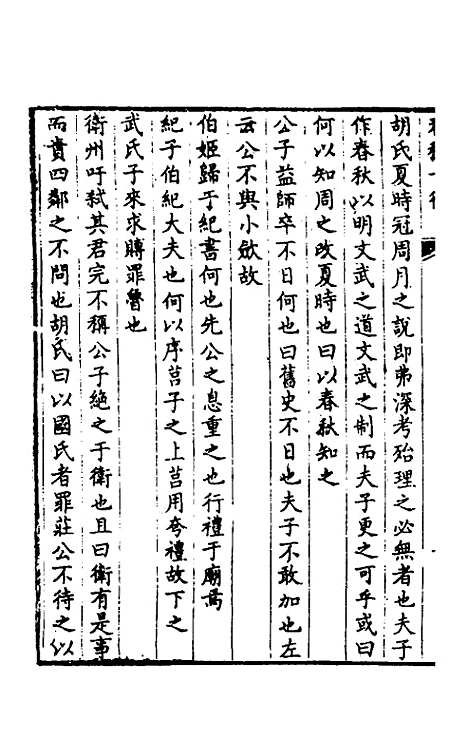 胡氏夏時冠周月之說即弗深考殆理之必無者也夫子
作春秋以明文武之道文武之制而夫子更之可乎或曰
何以知周之改夏時也曰以春秋知之
公子益師卒不日何也曰舊史不日也夫子不敢加也左
云公不與小斂故
伯姬歸于紀書何也先公之息重之也行禮于廟焉
紀子伯紀大夫也何以序莒子之上莒用夸禮故下之
武氏子來求賻罪魯也
衛州吁弒其君完不稱公子絶之于衛也且曰衛有是事
而責四鄰之不問也胡氏曰以國氏者罪莊公不待之以